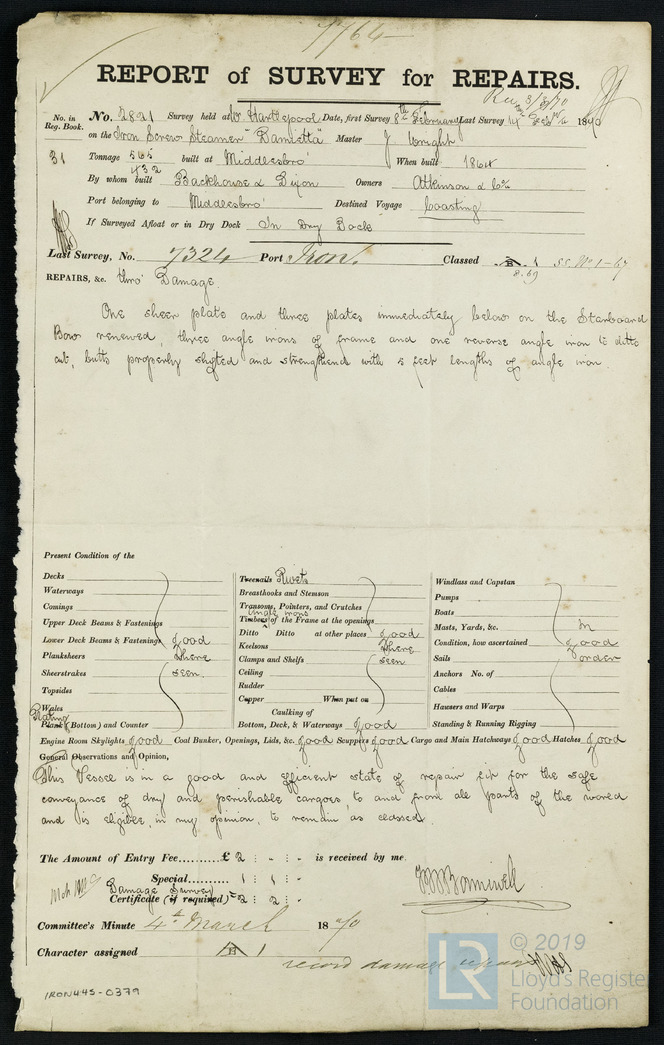 7764
REPORT of SURVEY for REPAIRS.
Rec 3/3/70
No. in Reg. Book.
No. 2821 Survey held at W Hartlepool Date, first Survey 8th February Last Survey 14 Feb 1870
on the Iron Screw Steamer "Damietta" Master J Wright
31 Tonnage 565 built at Middlesbro When built 1864
432
By whom built Backhouse & Dixon Owners Atkinson & Co
Port belonging to Middlesbro' Destined Voyage Coasting
If Surveyed Afloat or in Dry Dock In Dry Dock
Last Survey, No. 7324 Port Iron. Classed A 1 S.S. No 1-67
8.69
REPAIRS, &c. thro' Damage.
One sheer plate and three plates immediately below on the Starboard
Bow renewed, three angle irons of frame and one reverse angle iron to ditto
cut, butts properly shifted and strengthened with 5 feet lengths of angle iron.
Present Condition of the
Decks
Waterways
Comings
Upper Deck Beams & Fastenings
Lower Deck Beams & Fastenings good
Planksheers Where
Sheerstrakes seen.
Topsides
Wales
Plating
Plank (Bottom) and Counter
Treenails Rivets
Breasthooks and Stemson
Transoms, Pointers, and Crutches
Angle irons
Timbers of the Frame at the openings
Ditto Ditto at other places good
Keelsons Where
Clamps and Shelfs seen
Ceiling
Rudder
Copper When put on
Caulking of
Bottom, Deck, & Waterways good
Windlass and Capstan
Pumps
Boats
Masts, Yards, &c. In
Condition, how ascertained good
Sails order
Anchors No. of
Cables
Hawsers and Warps
Standing & Running Rigging
Engine Room Skylights good Coal Bunker, Openings, Lids, &c. good Scuppers good Cargo and Main Hatchways good Hatches good
General Observations and Opinion,
This Vessel is in a good and efficient state of repair fit for the safe
conveyance of dry and perishable cargoes, to and from all parts of the world
and is eligible, in my opinion, to remain as classed.
The Amount of Entry Fee.......... £ 2 : - : - is received by me.
Special.......... 1 : 1 : -
Damage Survey
Certificate (if required) 2 : 2 : -
Committee's Minute 4th March 1870
Character assigned A 1
record damage repairs
IRON445-0379
© 2019
LR
Lloyd's Register
Foundation